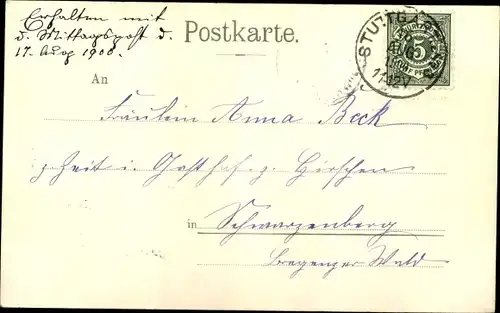 Erhalten mit
d. Mittagspost d.
17. Aug 1900.
Postkarte.
STUTTGART
AUG
11-12V
5
FÜNF PFENNIG
An
Fräulein Anna Beck
z. Zeit i. Gasthof z. Hirschen
in Schwarzenberg
Bregenzer Wald